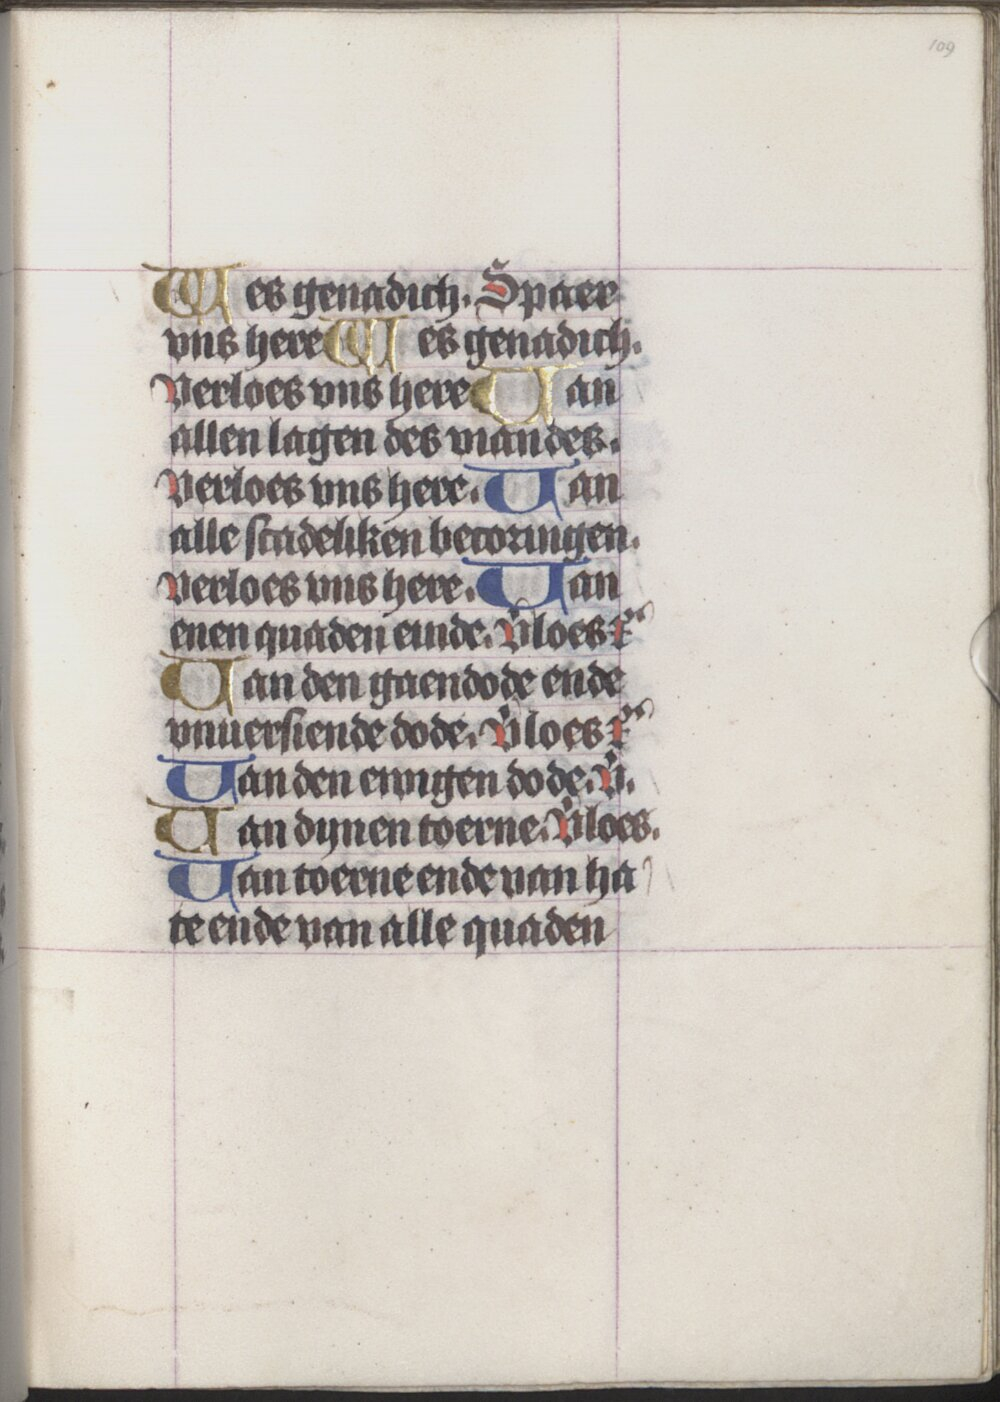 109
Wes genadich. Spaer
vns here Wes genadich.
Verloes vns here Van
allen lagen des viandes.
Verloes vns here. Van
alle scadeliken becoringen.
Verloes vns here. Van
enen quaden einde. V̉loes
Van den gaendode ende
vnuersiende dode. V̉loes
Van den ewigen dode. V̉.
Van dynen toerne. V̉loes.
Van toerne ende van ha
te ende van alle quaden